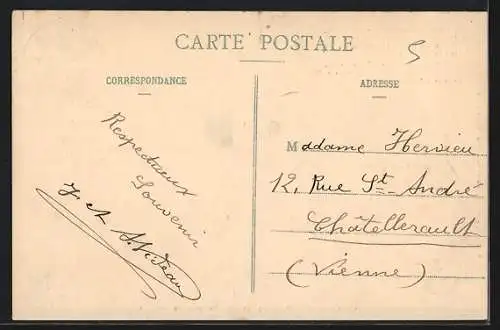 CARTE POSTALE
5
CORRESPONDANCE
ADRESSE
Respectueux
Souvenir
J. et A.
Madame Hervieu
12, Rue St André
Châtellerault
(Vienne)